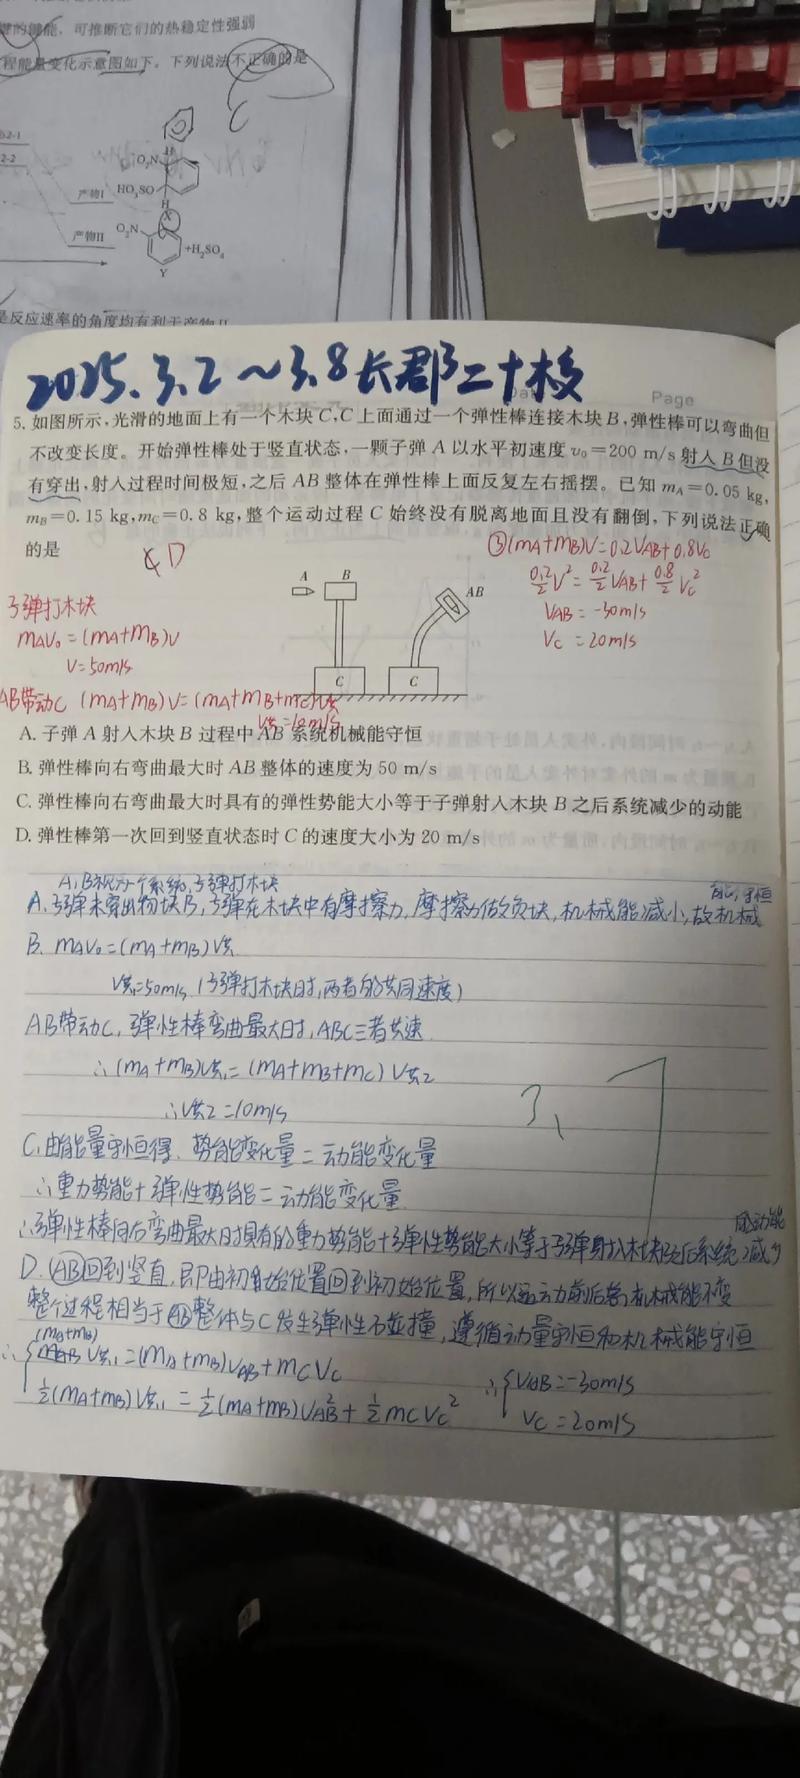 键的键能,可推断它们的热稳定性强弱
程能量变化示意图如下。下列说法不正确的是
C
2-1
2-2
O₂N
产物I
HO₃SO
H
X
产物II
O₂N
+H₂SO₄
Y
是反应速率的角度均有利于产物II
2025.3.2~3.8长郡二十校
Page
5. 如图所示,光滑的地面上有一个木块C,C上面通过一个弹性棒连接木块B,弹性棒可以弯曲但
不改变长度。开始弹性棒处于竖直状态,一颗子弹A以水平初速度v₀=200 m/s射入B但没
有穿出,射入过程时间极短,之后AB整体在弹性棒上面反复左右摇摆。已知mA=0.05 kg,
mB=0.15 kg,mC=0.8 kg,整个运动过程C始终没有脱离地面且没有翻倒,下列说法正确
的是
D
③(mA+mB)V=0.2VAB+0.8Vc
0.2/2V²=0.2/2VAB+0.8/2Vc²
VAB=-30m/s
Vc=20m/s
子弹打木块
mAV₀=(mA+mB)V
V=50m/s
AB带动C (mA+mB)V=(mA+mB+mC)V共
V共=10m/s
A
B
AB
C
C
A. 子弹A射入木块B过程中AB系统机械能守恒
B. 弹性棒向右弯曲最大时AB整体的速度为50 m/s
C. 弹性棒向右弯曲最大时具有的弹性势能大小等于子弹射入木块B之后系统减少的动能
D. 弹性棒第一次回到竖直状态时C的速度大小为20 m/s
A,B视为一个系统,子弹打木块
A.子弹未穿出物块B,子弹在木块中有摩擦力,摩擦力做负块,机械能减小,故机械
B. mAV₀=(mA+mB)V共
V共₁=50m/s(子弹打木块时,两者的共同速度)
AB带动C,弹性棒弯曲最大时,ABC三者共速
∴(mA+mB)V共₁=(mA+mB+mC)V共2
∴V共2=10m/s
C.由能量守恒得.势能变化量=动能变化量
∴重力势能+弹性势能=动能变化量
∴弹性棒向右弯曲最大时具有的重力势能+弹性势能大小等于子弹射入木块B之后系统减少
的动能
D.(AB)回到竖直,即由初始位置回到初始位置,所以运动前后机械能不变
整个过程相当于AB整体与C发生弹性碰撞,遵循动量守恒和机械能守恒
(mA+mB)
∴ V共₁=(mA+mB)VAB+mCVC
½(mA+mB)V共₁=½(mA+mB)VAB²+½mCVC²
∴ VAB=-30m/s
VC=20m/s